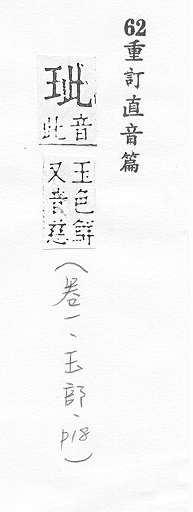 62重訂直音篇
玼
音
此
玉色鮮
又音慈
(卷一、玉部、p18)